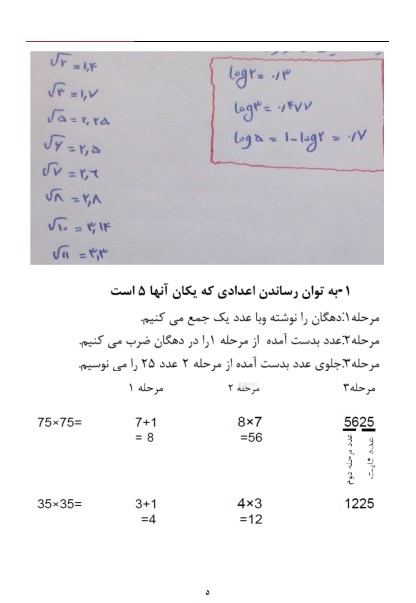 √۲ = ۱,۴
√۳ = ۱,۷
√۵ = ۲,۲۵
√۶ = ۲,۵
√۷ = ۲,۶
√۸ = ۲,۸
√۱۰ = ۳,۱۴
√۱۱ = ۳,۳
log۲ = ۰/۳
log۳ = ۰/۴۷۷
log۵ = ۱ - log۲ = ۰/۷
۱-به توان رساندن اعدادی که یکان آنها ۵ است
مرحله۱:دهگان را نوشته وبا عدد یک جمع می کنیم.
مرحله۲:عدد بدست آمده از مرحله ۱را در دهگان ضرب می کنیم.
مرحله۳:جلوی عدد بدست آمده از مرحله ۲ عدد ۲۵ را می نوسیم.
مرحله ۱ مرحله ۲ مرحله۳
75×75= 7+1 8×7 5625
= 8 =56
عدد مرحله دوم
عدد ثابت.
35×35= 3+1 4×3 1225
=4 =12
۵